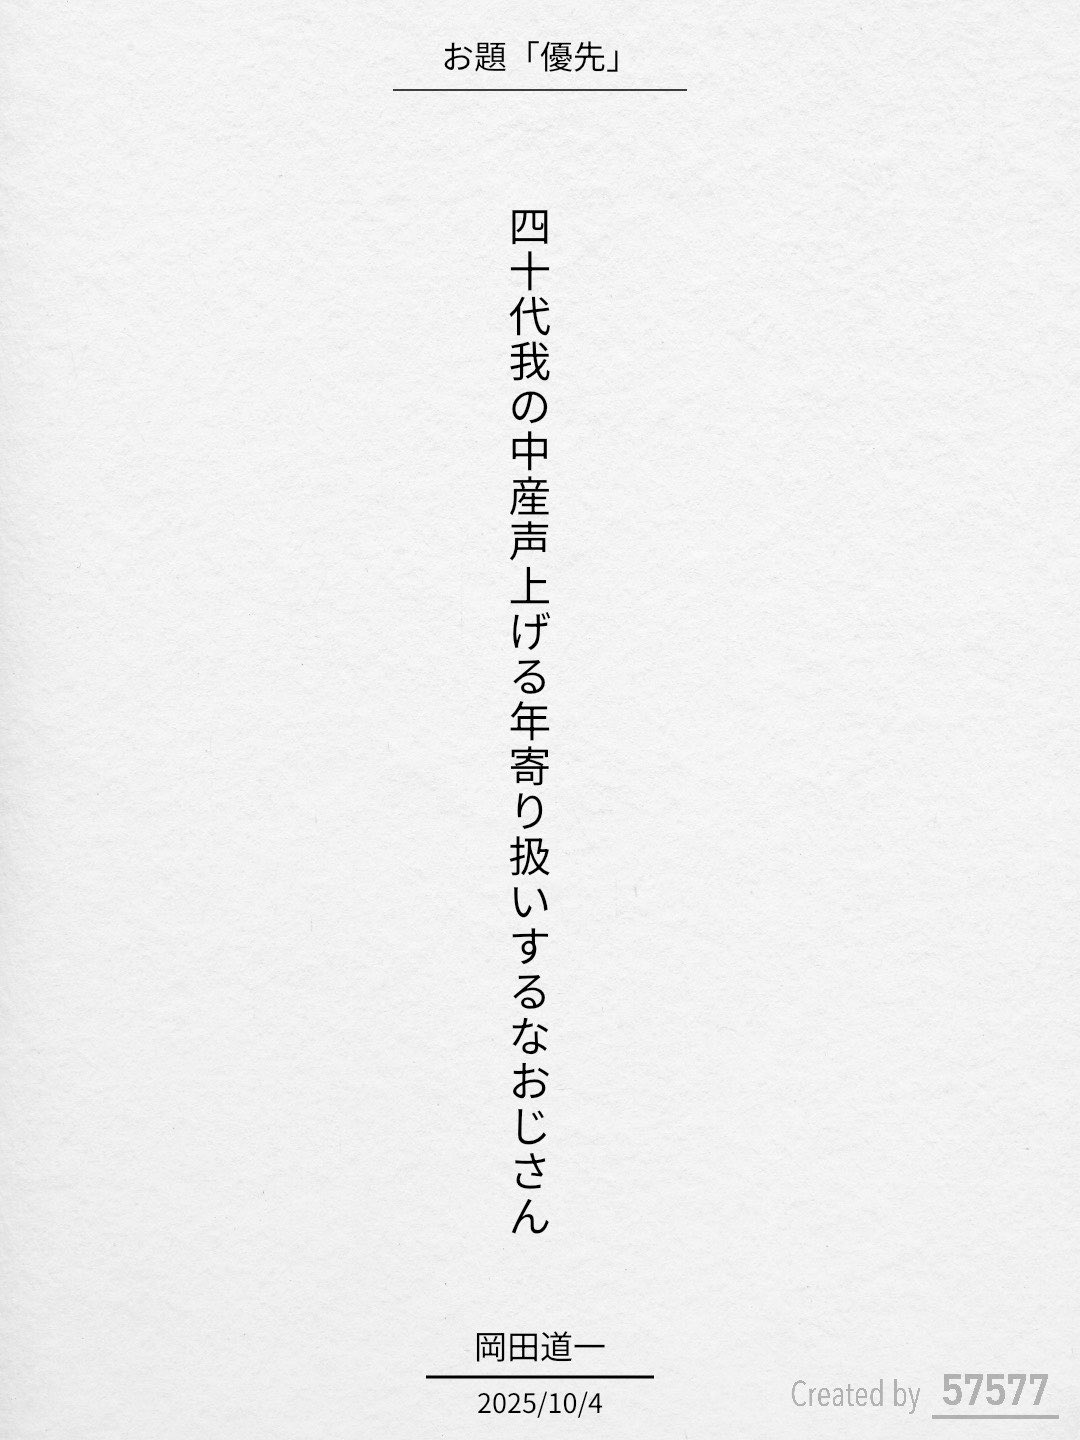 お題「優先」
四十代我の中産声上げる年寄り扱いするなおじさん
岡田道一
2025/10/4
Created by 57577